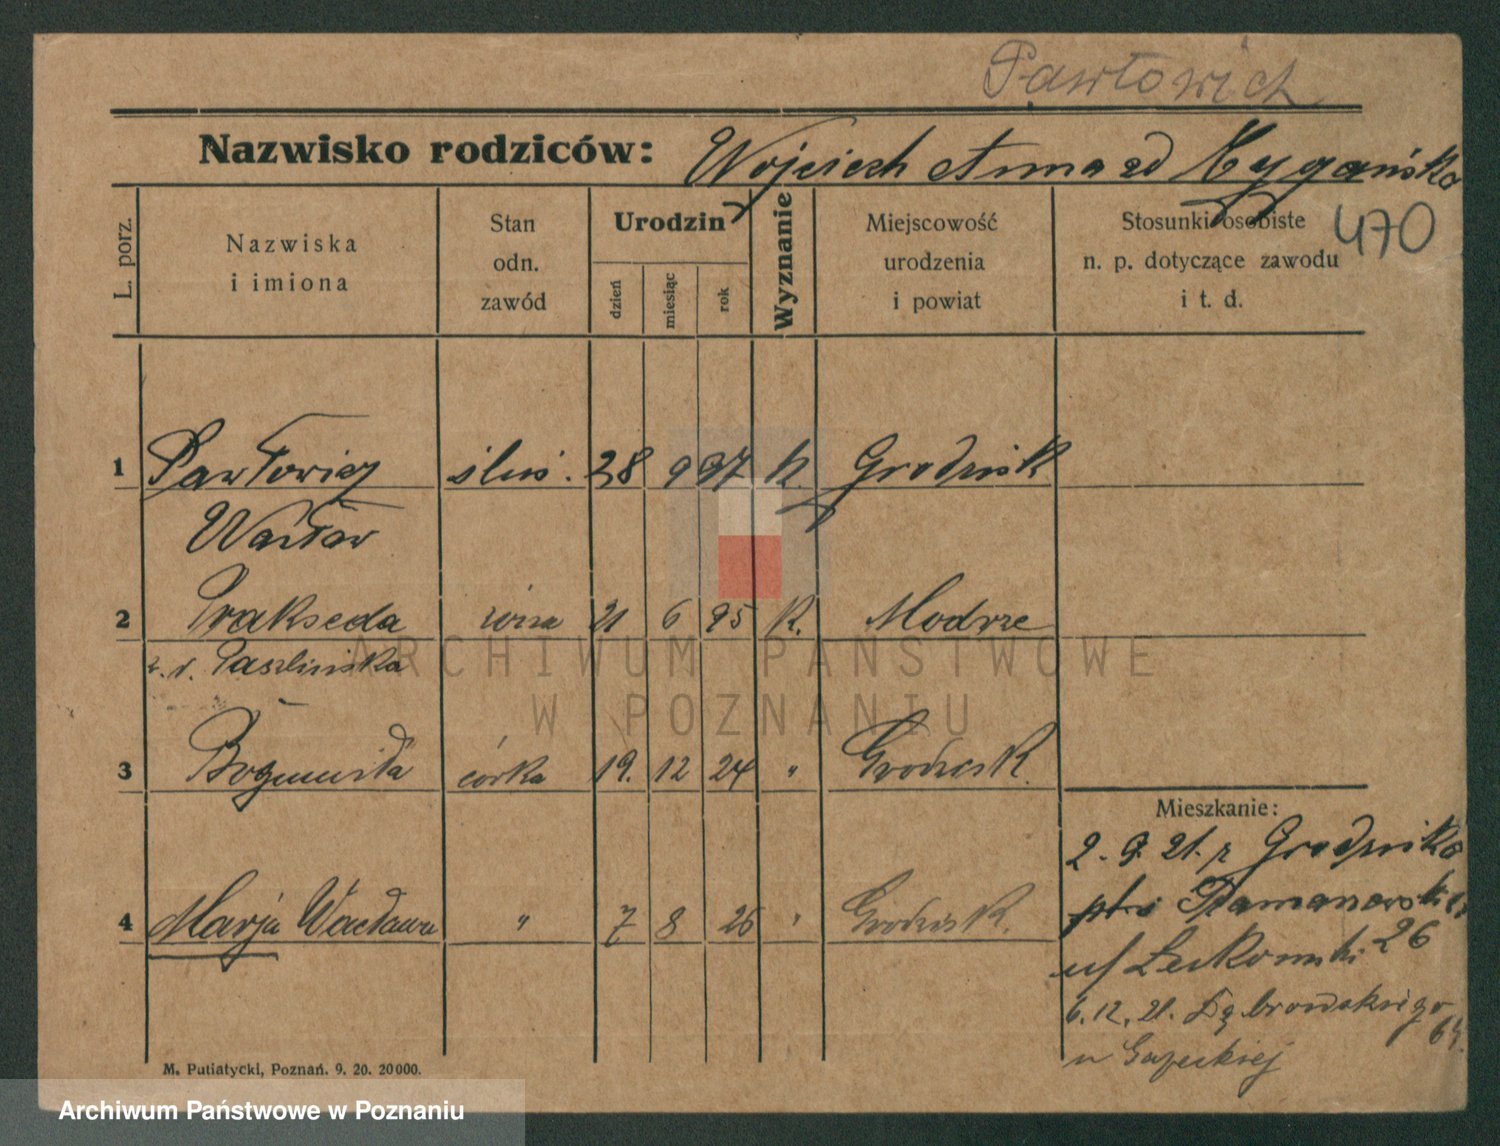 Pawłowicz
Nazwisko rodziców: Wojciech Anna zd Cygańska
470
L. porz.
Nazwiska i imiona
Stan odn. zawód
Urodzin
dzień
miesiąc
rok
Wyznanie
Miejscowość urodzenia i powiat
Stosunki osobiste n. p. dotyczące zawodu i t. d.
1 Pawłowicz ślus. 28 9 97 k. Grodzisk
Wacław
2 Prakseda żona 21 6 95 k. Modrze
z. d.
3 Bogumiła córka 19. 12 24 " Grodzisk
4 Marja Wacława " 7 8 26 " Grodzisk.
Mieszkanie:
2. 9. 21. z Grodziska
26
6. 12. 21. Dąbrowskiego
u
M. Putiatycki, Poznań. 9. 20. 20000.
ARCHIWUM PAŃSTWOWE
W POZNANIU
Archiwum Państwowe w Poznaniu